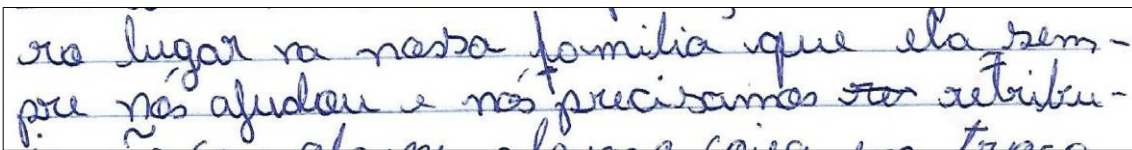 ro lugar na nossa familia que ela sem-
pre nós ajudou e nós precisamos re retribu-